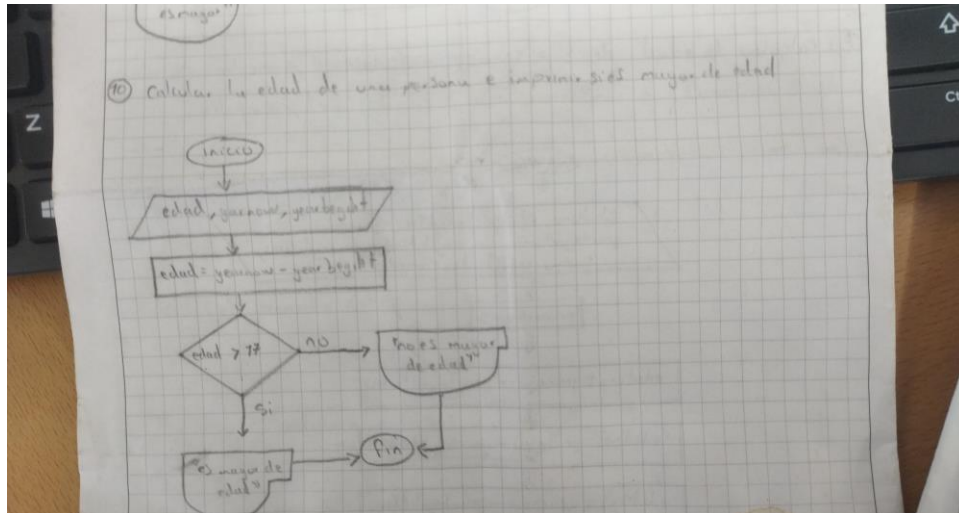 es mayor"
10 Calcular la edad de una persona e imprimir si es mayor de edad
inicio
edad, yearnow, yearbeght
edad = yearnow - yearbeght
edad > 17
no
"no es mayor
de edad"
si
fin
"es mayor de
edad"
Z
Ct